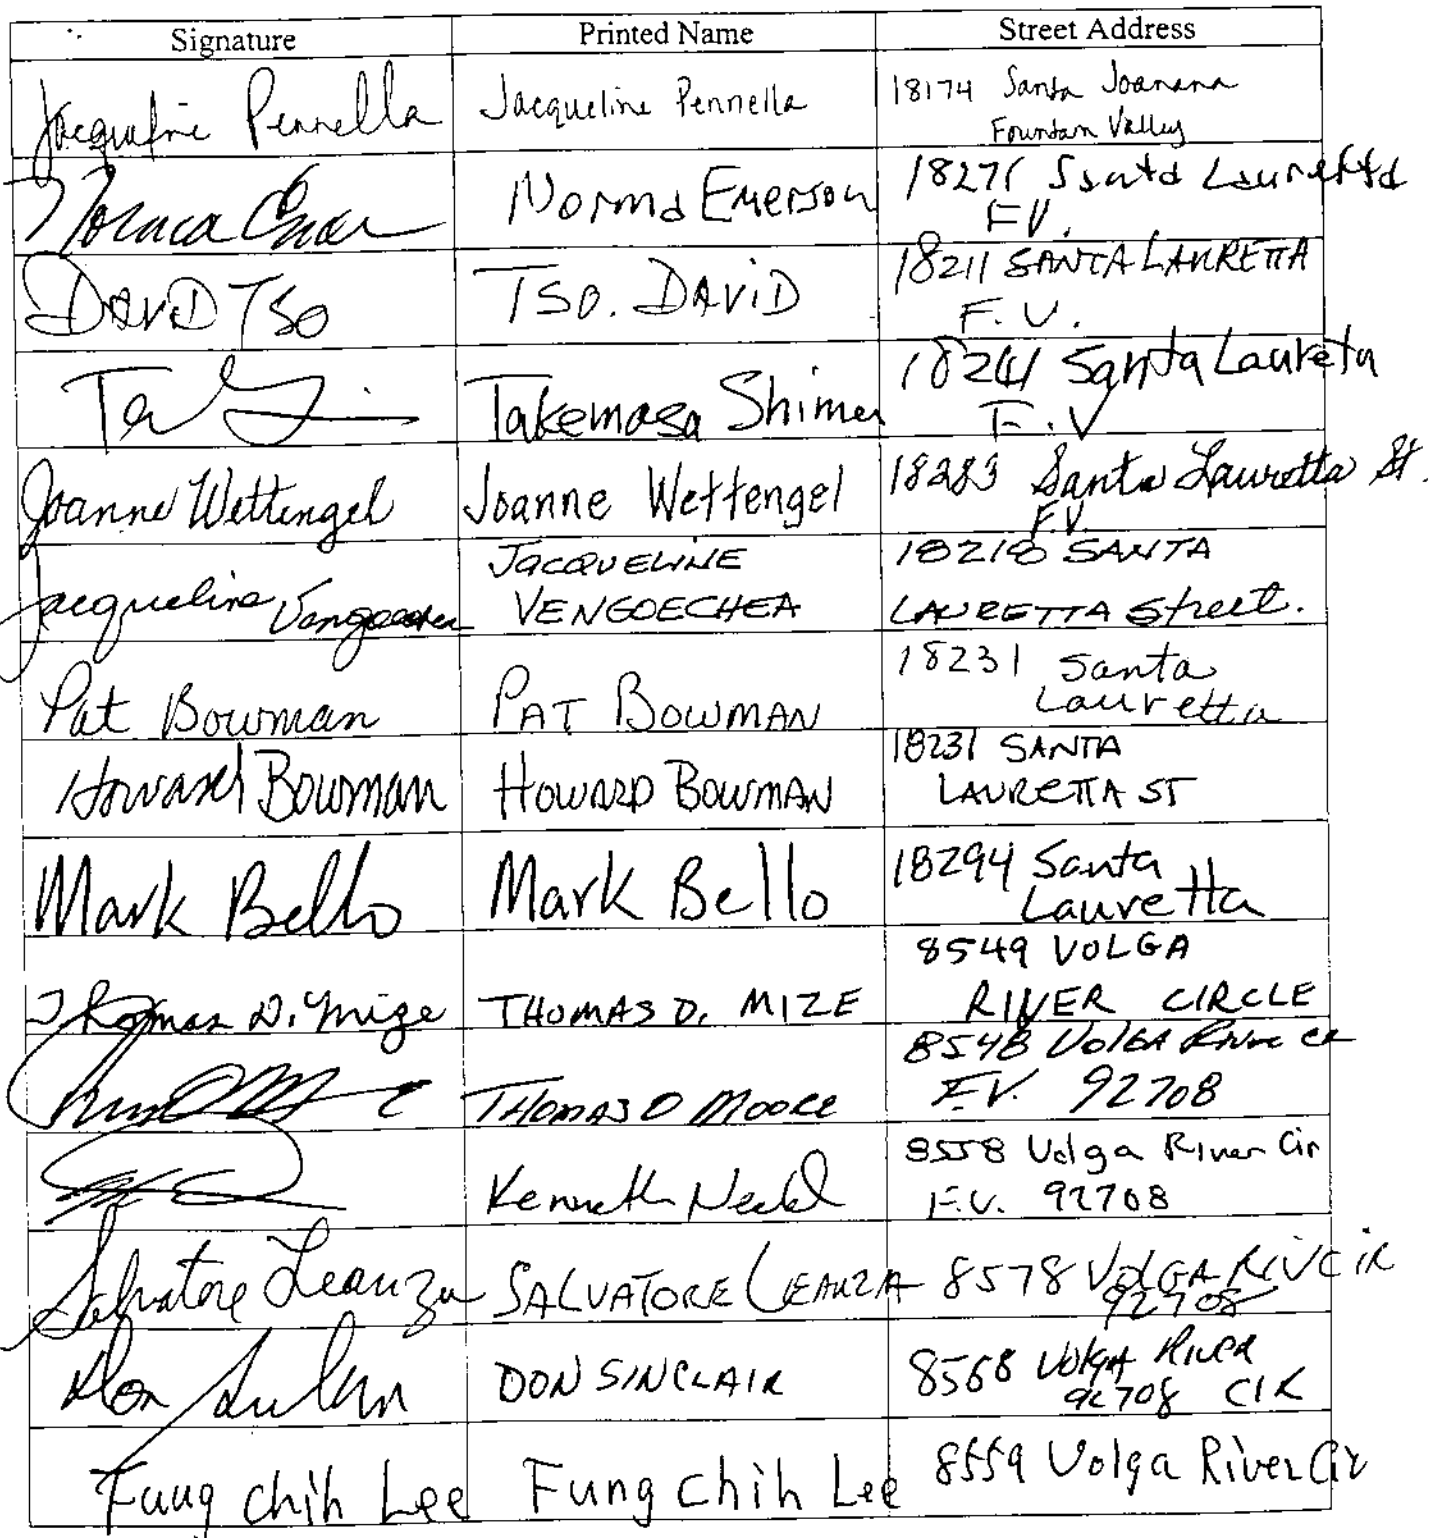 Signature Printed Name Street Address
Jacqueline Pennella Jacqueline Pennella 18174 Santa Joanana
Fountain Valley
Norma Norma Emerson 18271 Santa Lauretta
F.V.
DAVID TSO TSO. DAVID 18211 SANTA LAURETTA
F.V.
Takemasa 18241 Santa Laureta
F.V
Joanne Wettengel Joanne Wettengel 18283 Santa Lauretta St.
F.V.
Jacqueline JACQUELINE 18218 SANTA
VENGOECHEA LAURETTA Street.
Pat Bowman PAT BOWMAN 18231 Santa
Lauretta
Howard Bowman HOWARD BOWMAN 18231 SANTA
LAURETTA ST
Mark Bello Mark Bello 18294 Santa
Lauretta
8549 VOLGA
Thomas D. Mize THOMAS D. MIZE RIVER CIRCLE
8548 VOLGA River CR
THOMAS D MOORE F.V. 92708
8558 Volga River Cir
Kenneth F.V. 92708
Salvatore Leanza SALVATORE LEANZA 8578 VOLGA RIV CIR
92708
Don DON SINCLAIR 8568 VOLGA RIVER
92708 CIR
Fung chih Lee Fung chih Lee 8559 Volga River Cir